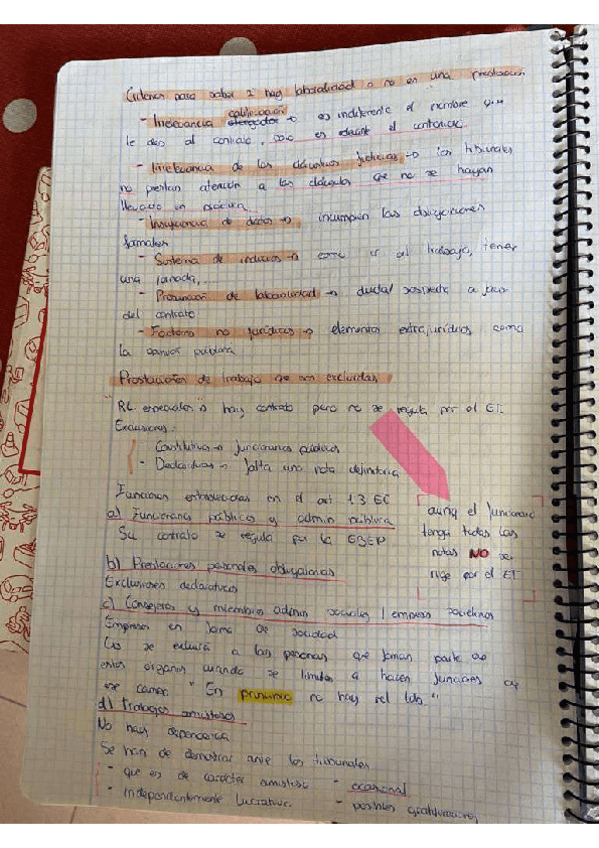 Criterios para saber si hay laboralidad o no en una prestación
calificación
- Irrelevancia → es indiferente el nombre que
le des al contrato, solo es el contenido
- Irrelevancia de las cláusulas → los tribunales
no prestan atención a las cláusulas que no se hayan
llevado en
- Insuficiencia de datos → incumplen las obligaciones
formales
- Sistema de indicios → como ir al trabajo, tener
una jornada,...
- Presunción de laboralidad →
del contrato
- Factores no jurídicos → elementos extrajurídicos como
la opinión pública
Prestaciones de trabajo que son excluidas
"RL especiales" → hay contrato pero no se regula por el ET
Exclusiones:
- Constitutivas → funcionarios públicos
- Declarativas → falta una nota definitoria
Funciones en el art 1.3
a) Funcionarios públicos y admin pública
Su contrato se regula por la EBEP
aunq el funcionario
tenga todas las
notas NO se
rige por el ET
b) Prestaciones personales obligatorias
Exclusiones declarativas
c) Consejeros y miembros admin sociales / empresas societarias
Empresas en forma de sociedad
Los se excluirá a las personas que forman parte de
estos órganos cuando se limiten a hacer funciones de
ese campo "En principio no hay rel lab."
d) Trabajos amistosos
No hay dependencia
Se han de demostrar ante los tribunales
- que es de carácter amistoso - ocasional
- Independientemente lucrativo. - posibles gratificaciones